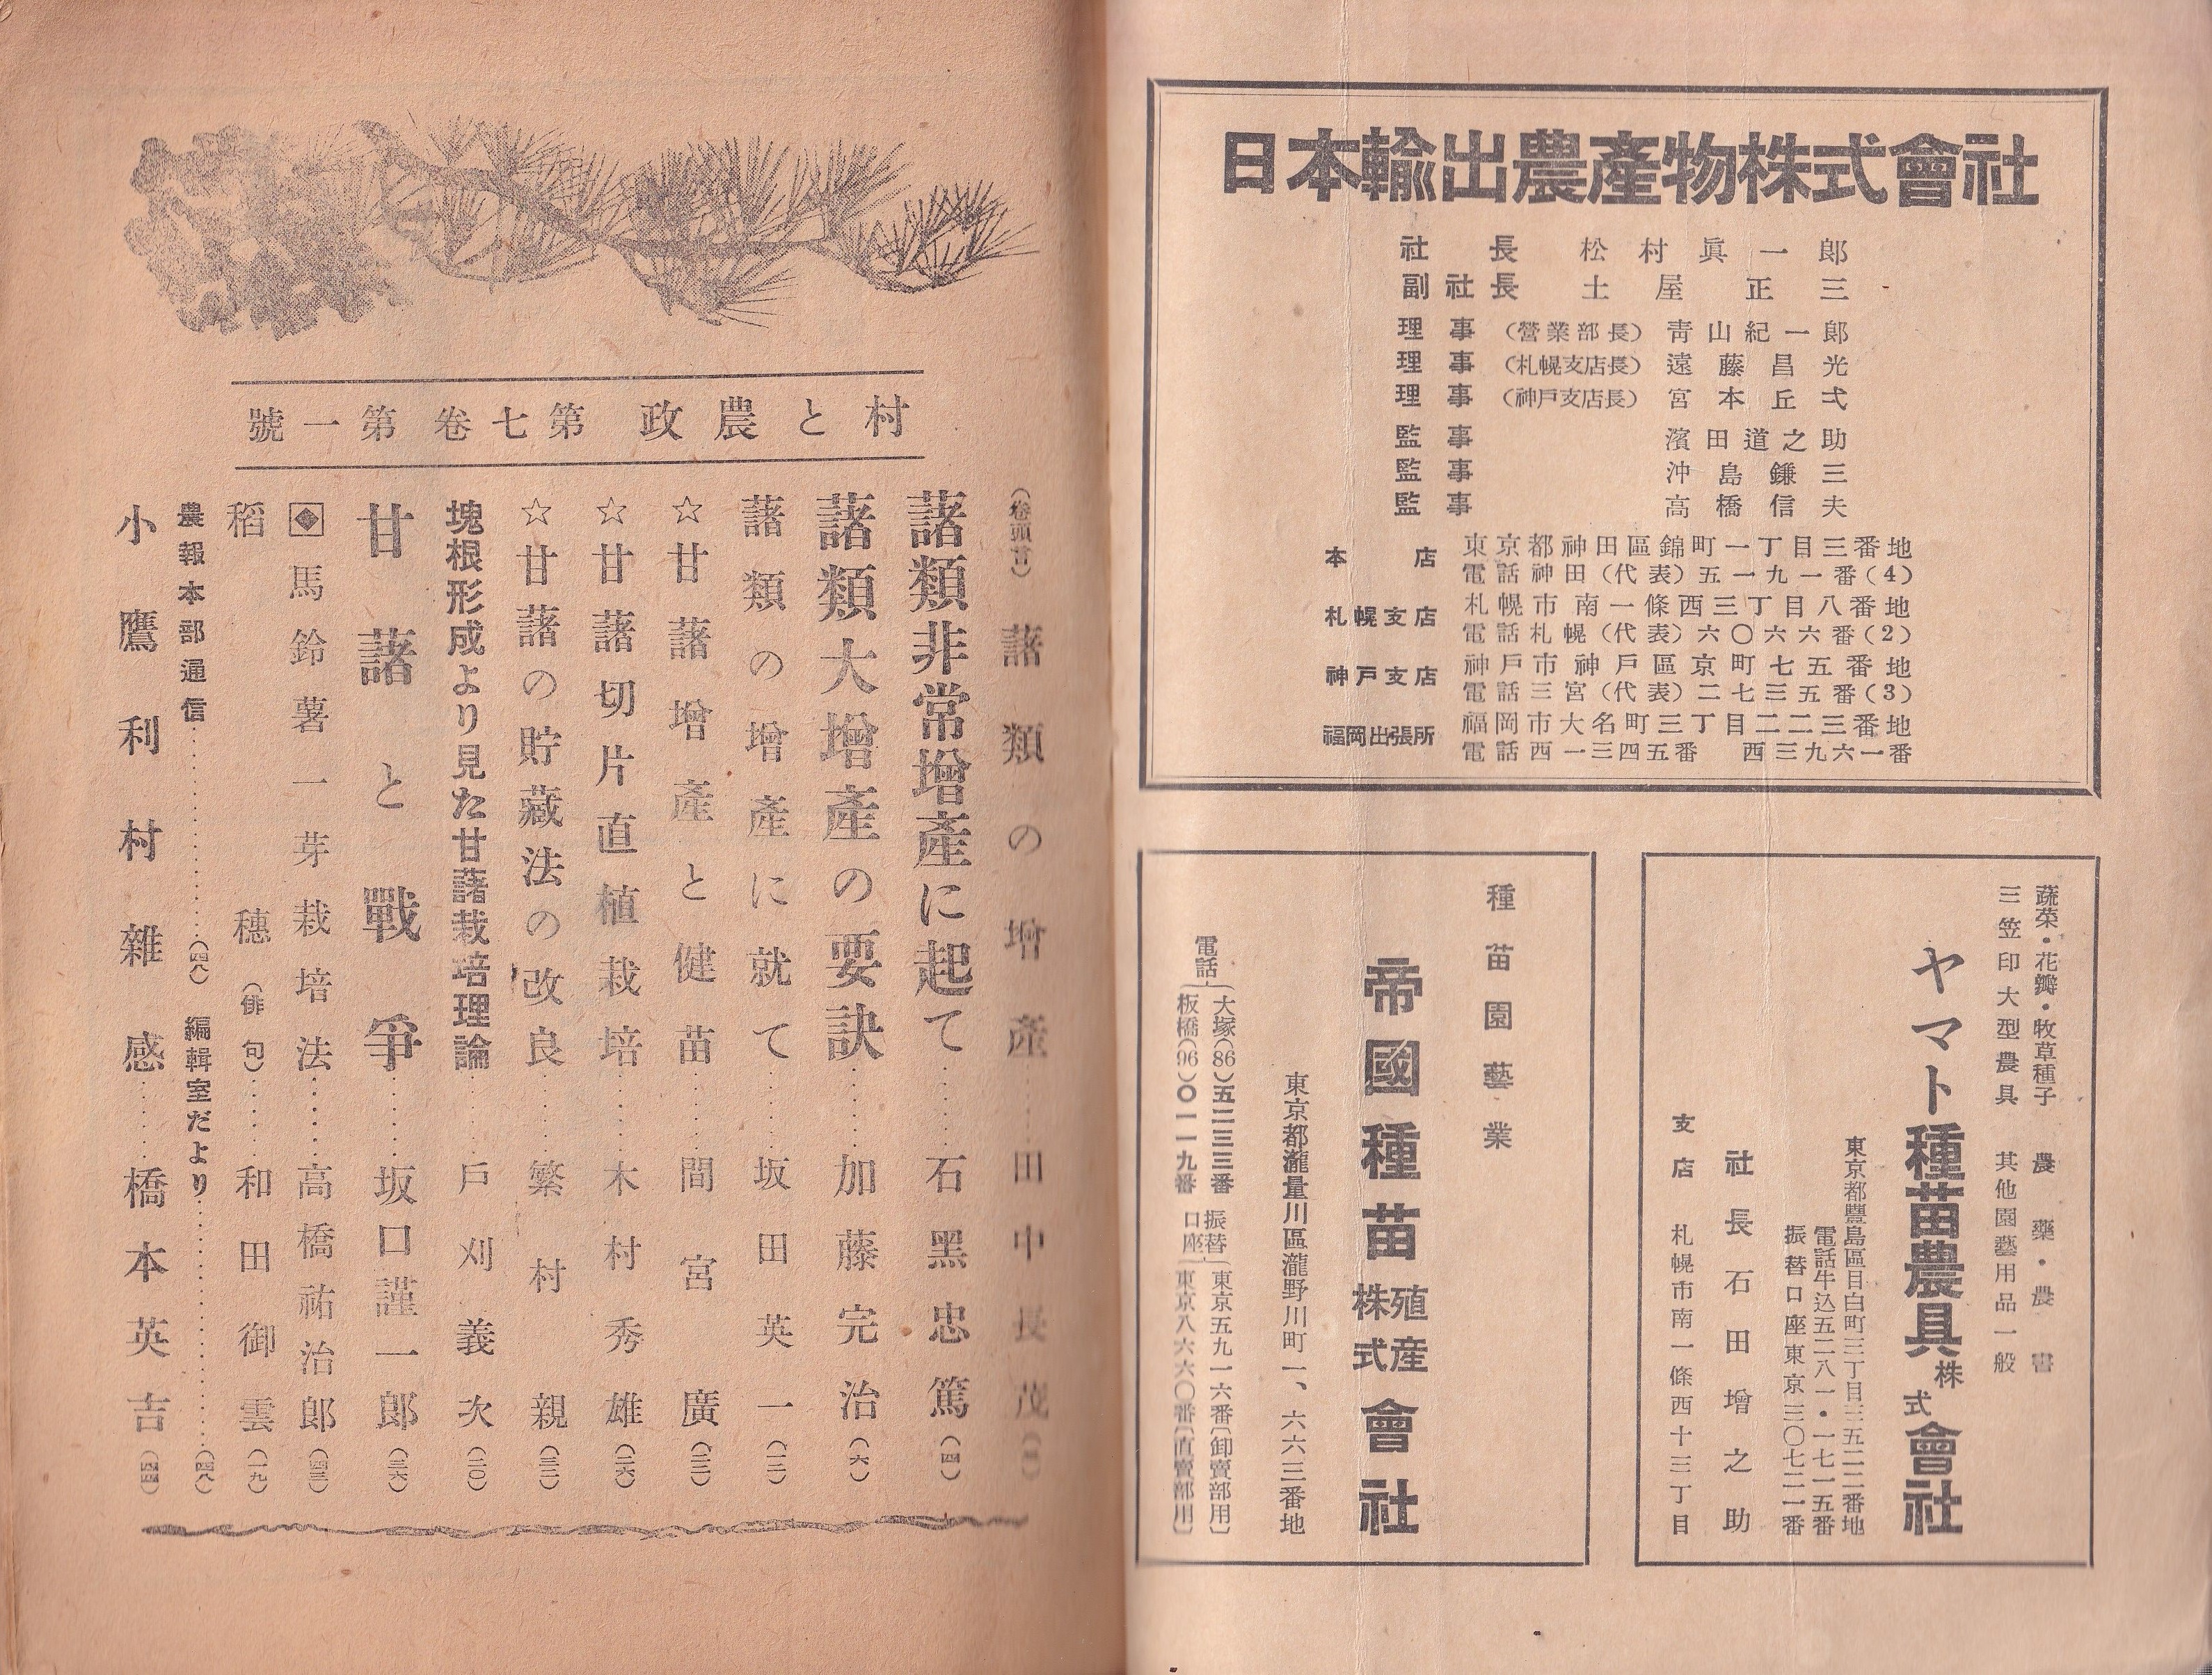 日本輸出農產物株式會社
社長 松村眞一郎
副社長 土屋正三
理事 (營業部長) 靑山紀一郎
理事 (札幌支店長) 遠藤昌光
理事 (神戶支店長) 宮本丘弌
監事 濱田道之助
監事 沖島鎌三
監事 高橋信夫
本店 東京都神田區錦町一丁目三番地
電話神田(代表)五一九一番(4)
札幌支店 札幌市南一條西三丁目八番地
電話札幌(代表)六〇六六番(2)
神戶支店 神戶市神戶區京町七五番地
電話三宮(代表)二七三五番(3)
福岡出張所 福岡市大名町三丁目二二三番地
電話西一三四五番 西三九六一番
蔬菜・花瓣・牧草種子 農藥・農書
三笠印大型農具 其他園藝用品一般
ヤマト種苗農具株式會社
東京都豐島區目白町三丁目三五二二番地
電話牛込五二八一・一七一五番
振替口座東京三〇七二一番
社長 石田增之助
支店 札幌市南一條西十三丁目
種苗園藝業
帝國種苗殖產株式會社
東京都瀧量川區瀧野川町一、六六三番地
電話 大塚(86)五二三三番
板橋(96)〇一一九番
振替口座 東京五九一六番〔卸賣部用〕
東京八六六〇番〔直賣部用〕
村と農政 第七卷 第一號
(卷頭言) 藷類の增產……田中長茂(二)
藷類非常增產に起て……石黑忠篤(四)
藷類大增產の要訣……加藤完治(六)
藷類の增產に就て……坂田英一(一二)
☆甘藷增產と健苗……間宮廣(二三)
☆甘藷切片直植栽培……木村秀雄(二六)
☆甘藷の貯藏法の改良……繁村親(三二)
塊根形成より見た甘藷栽培理論……戶刈義次(二〇)
甘藷と戰爭……坂口謹一郎(三六)
馬鈴薯一芽栽培法……高橋祐治郎(四三)
稻穗(俳句)……和田御雲(一九)
農報本部通信……(四八) 編輯室だより……(四八)
小鷹利村雜感……橋本英吉(四四)